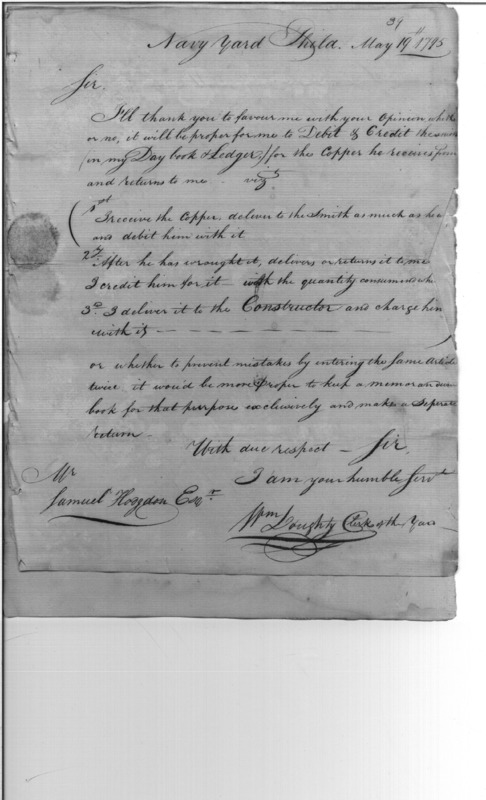 39
Navy Yard Philda. May 19th 1795
Sir.
I'll thank you to favour me with your Opinion
or no, it will be proper for me to Debit & Credit the
(in my Day book & Ledger,) for the Copper he receives from
and returns to me. vizt
1st
I receive the Copper. deliver to the Smith as much as he
and debit him with it
2d. After he has wrought it, delivers or returns it to me
I credit him for it — with the quantity consumed
3d. I deliver it to the Constructor and charge him
with it —
or whether to prevent mistakes by entering the same Article
twice it would be more proper to keep a memorandum
book for that purpose exclusively and make a Seperate
return —
With due respect — Sir,
I am your humble Servt
Mr
Samuel Hogdon Esqr.
Wm Doughty Clerk of the Yard